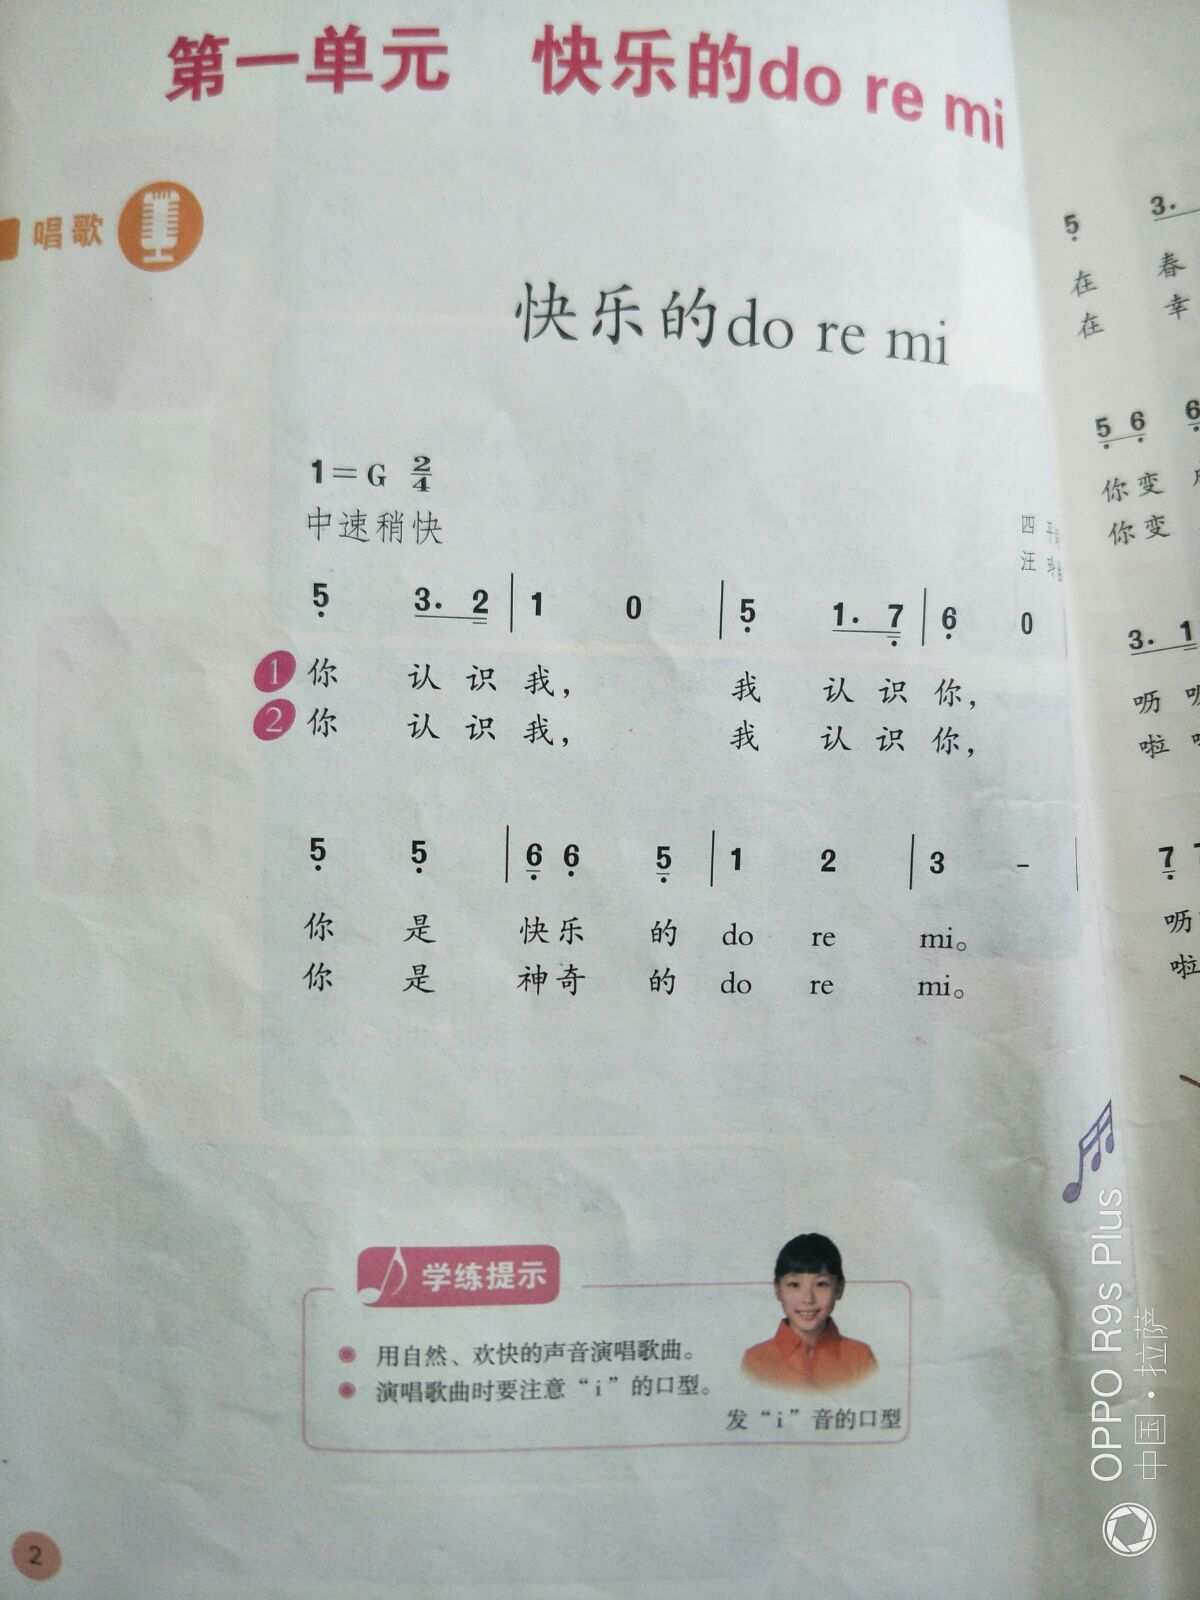 第一单元 快乐的do re mi
唱歌
快乐的do re mi
1=G 2/4
中速稍快
四
汪
5 3. 2 | 1 0 | 5 1. 7 | 6 0
1 你 认 识 我， 我 认 识 你，
2 你 认 识 我， 我 认 识 你，
5 5 | 6 6 5 | 1 2 | 3 - |
你 是 快乐 的 do re mi。
你 是 神奇 的 do re mi。
学练提示
用自然、欢快的声音演唱歌曲。
演唱歌曲时要注意“i”的口型。
发“i”音的口型
2
5 3.
在 春
在 幸
5 6 6
你变
你变
3. 1
呖
啦
7
呖
啦
OPPO R9s Plus
中国·拉萨